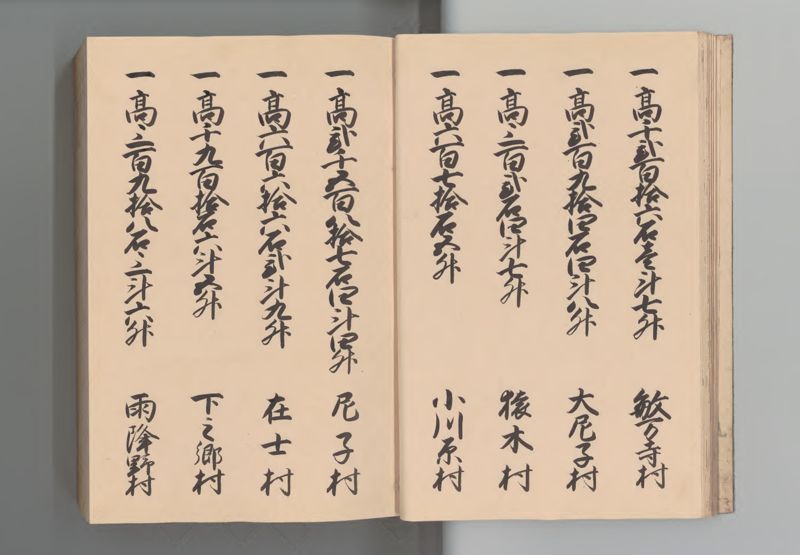 一 高千弐百拾六石壱斗七升 敏万寺村
一 高弐百九拾四石四斗八升 大尼子村
一 高三百弐石四斗七升 猿木村
一 高六百七拾石五升 小川原村
一 高弐千五百八拾七石四斗四升 尼子村
一 高六百六拾六石弐斗九升 在士村
一 高千九百拾石六斗五升 下之郷村
一 高三百九拾八石三斗六升 雨降野村